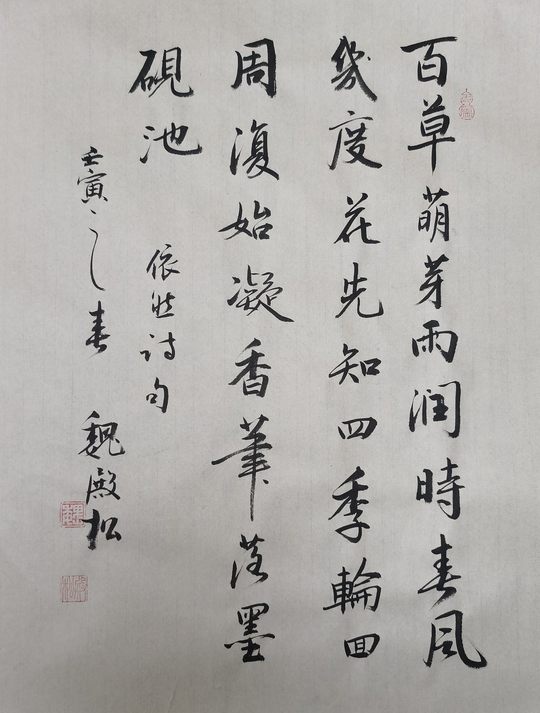 百草萌芽雨润時春风
幾度花先知四季輪回
周復始凝香筆落墨
硯池
依然詩句
壬寅之春
魏殿松